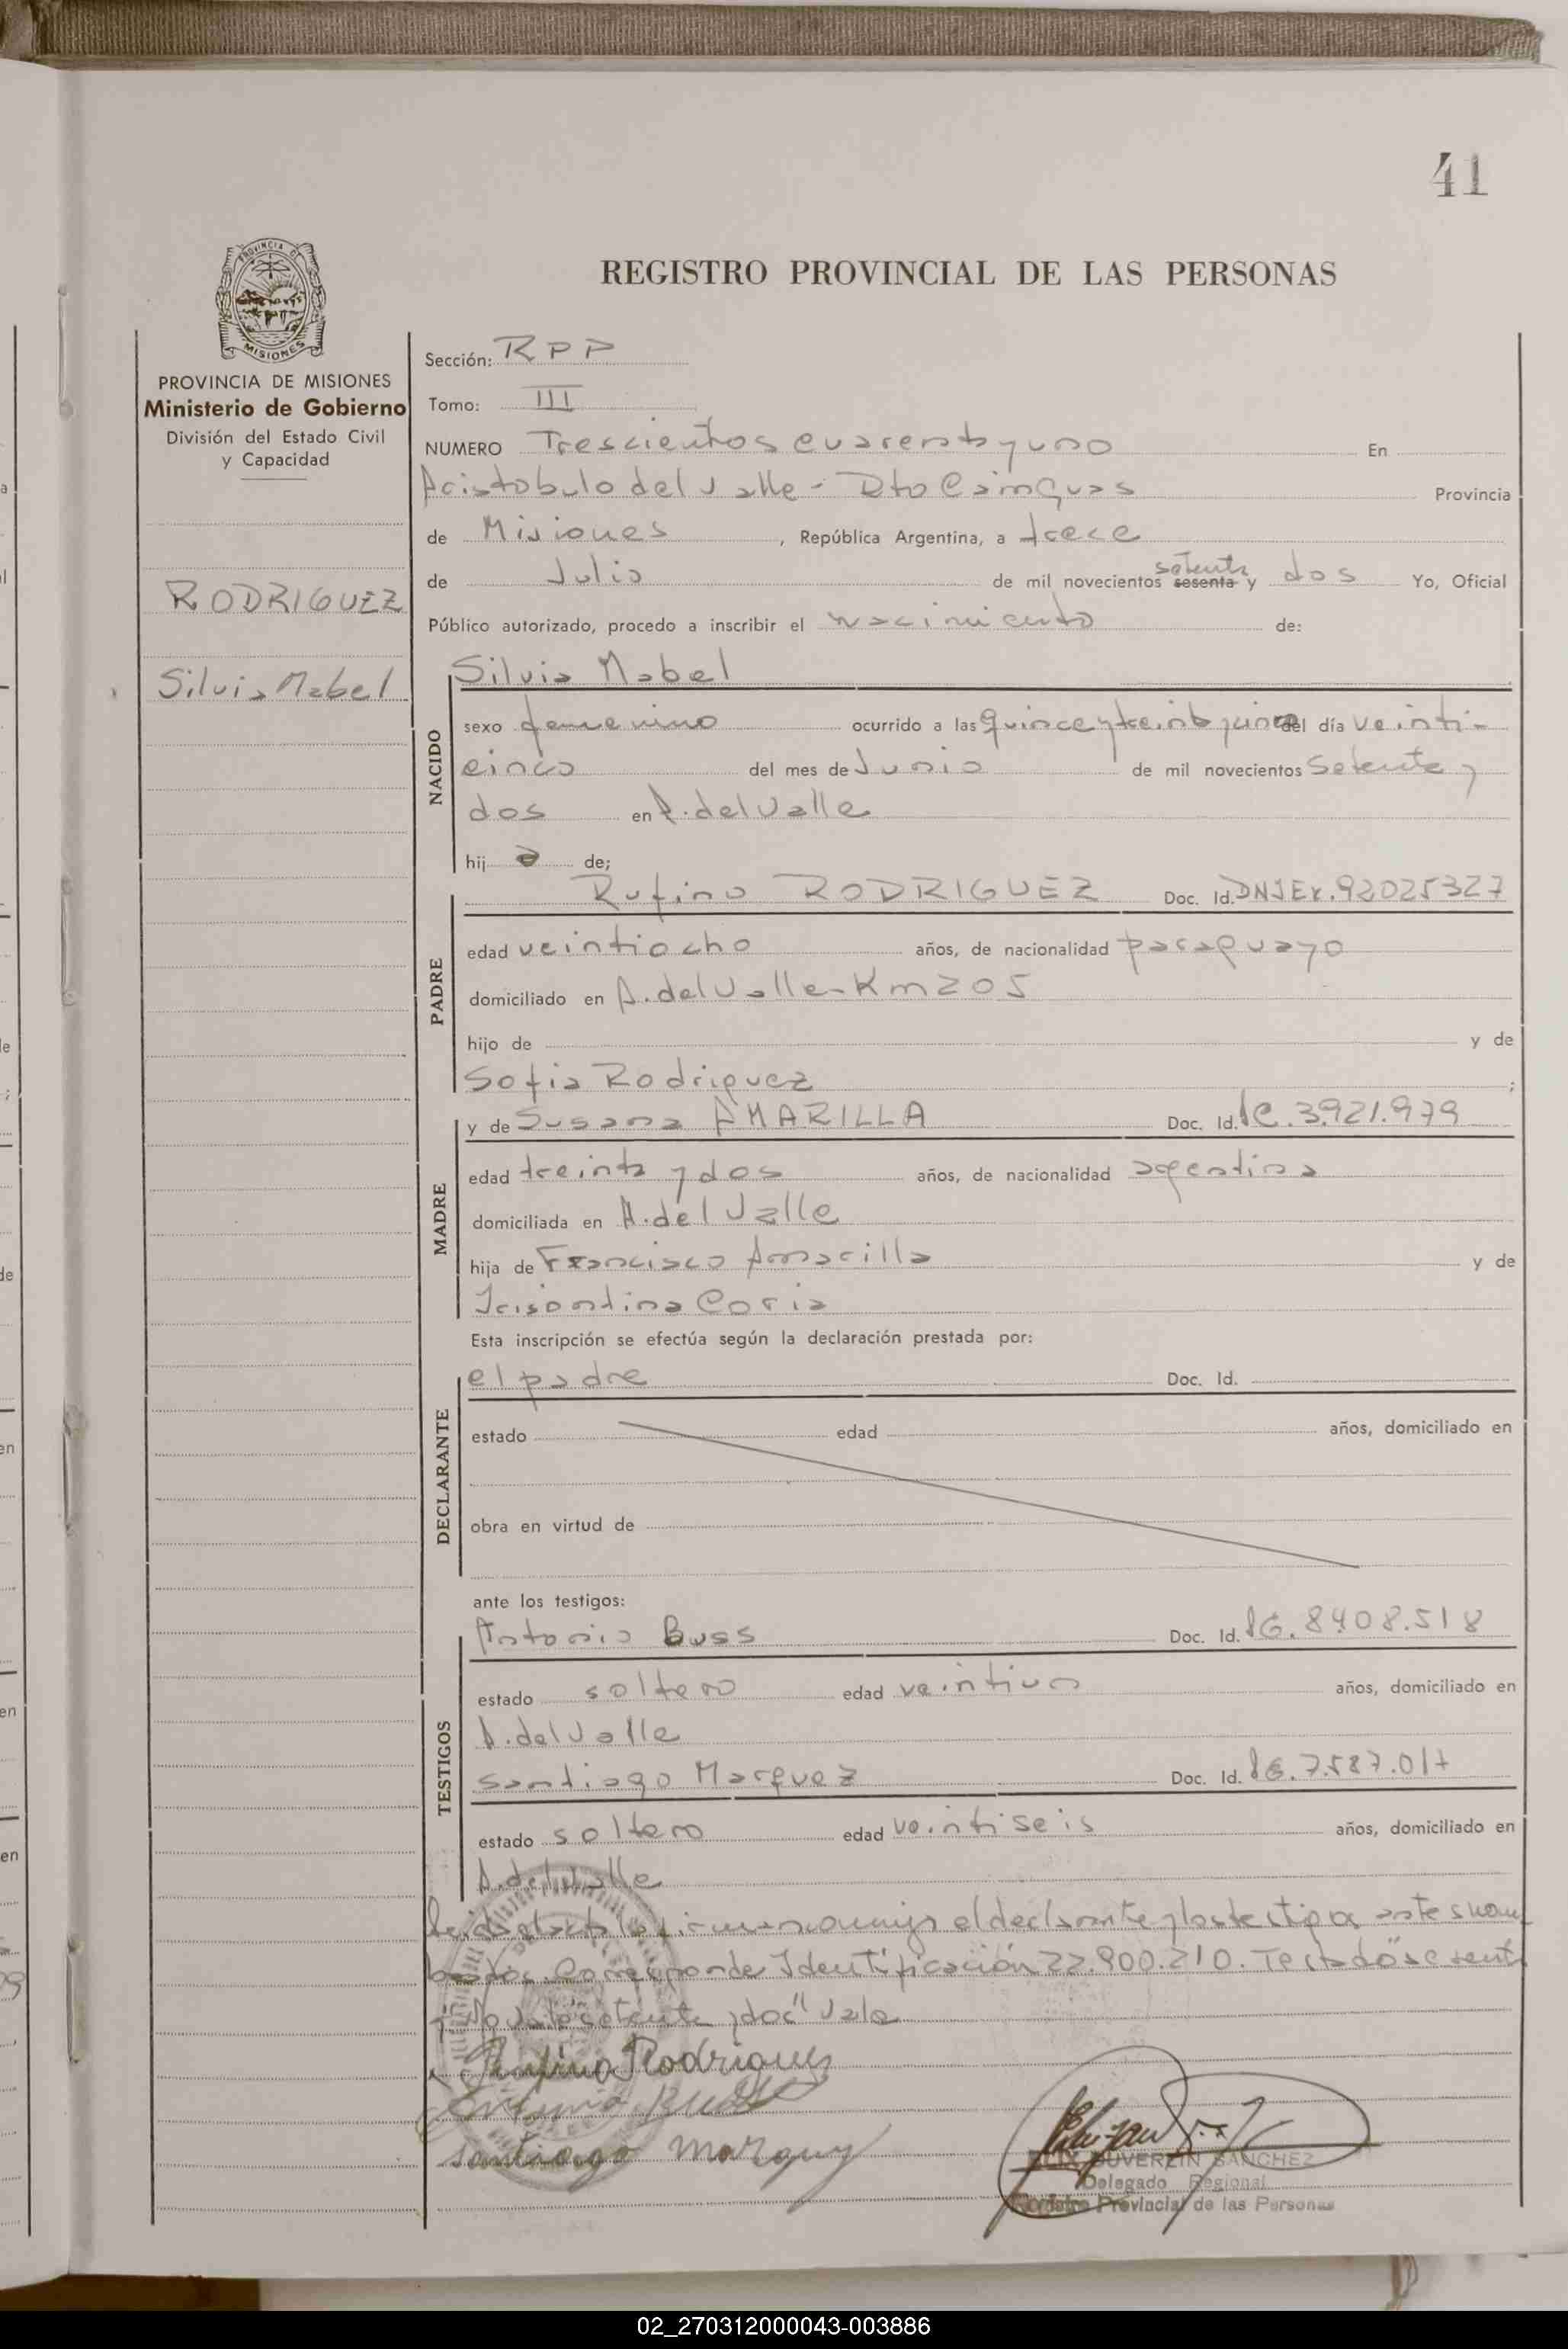 41
REGISTRO PROVINCIAL DE LAS PERSONAS
PROVINCIA DE MISIONES
Ministerio de Gobierno
División del Estado Civil
y Capacidad
RODRIGUEZ
Silvia Mabel
Sección: RPP
Tomo: III
NUMERO Trescientos cuarenta y uno En
Aristobulo del Valle - Dto Cainguas Provincia
de Misiones, República Argentina, a trece
de Julio de mil novecientos setenta sesenta y dos Yo, Oficial
Público autorizado, procedo a inscribir el nacimiento de:
NACIDO
Silvia Mabel
sexo femenino ocurrido a las quince y treinta y cinco del día veinti-
cinco del mes de Junio de mil novecientos setenta y
dos en A. del Valle
hij a de;
PADRE
Rufino RODRIGUEZ Doc. Id. DNIEx. 92025327
edad veintiocho años, de nacionalidad paraguayo
domiciliado en A. del Valle - Km 205
hijo de y de
Sofia Rodriguez ;
MADRE
y de Susana AMARILLA Doc. Id. lC. 3.921.979
edad treinta y dos años, de nacionalidad argentina
domiciliada en A. del Valle
hija de Francisco Amarilla y de
Crisontina Coria
Esta inscripción se efectúa según la declaración prestada por:
DECLARANTE
el padre Doc. Id.
estado edad años, domiciliado en
obra en virtud de
ante los testigos:
TESTIGOS
Antonio Buss Doc. Id. 8.408.518
estado soltero edad veintiun años, domiciliado en
A. del Valle
Santiago Marquez Doc. Id. 7.587.017
estado soltero edad veintiseis años, domiciliado en
A. del Valle
Leida el acta la firman conmigo el declarante y los testigos ante nom
brados. Corresponde Identificación 22.900.210. Testado "sesenta
" No vale "setenta y dos" Vale
Rufino Rodriguez
Antonio Buss
Santiago Marquez
FELIX DUVERZIN SANCHEZ
Delegado Regional
Registro Provincial de las Personas
02_270312000043-003886